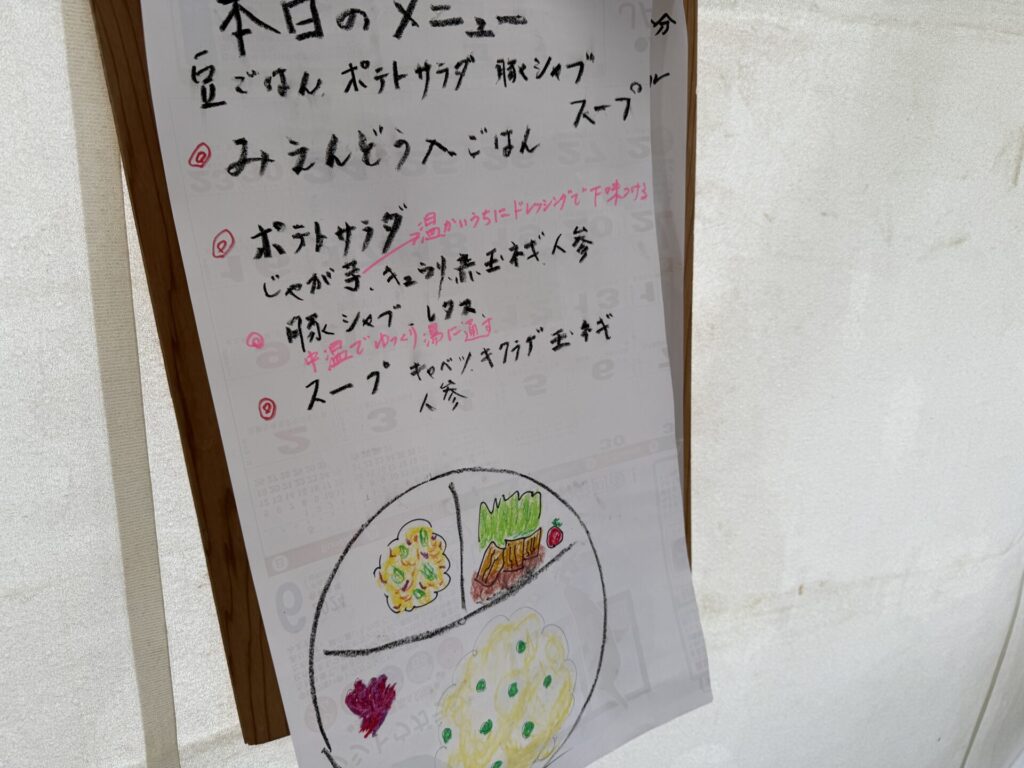 本日のメニュー
分
豆ごはん、ポテトサラダ 豚シャブ
スープ
みえんどう入ごはん
ポテトサラダ
温かいうちにドレッシングで下味つける
じゃが芋、キュウリ、赤玉ネギ、人参
豚シャブ、レタス、
中温でゆっくり湯に通す
スープ キャベツ、キクラゲ 玉ネギ
人参